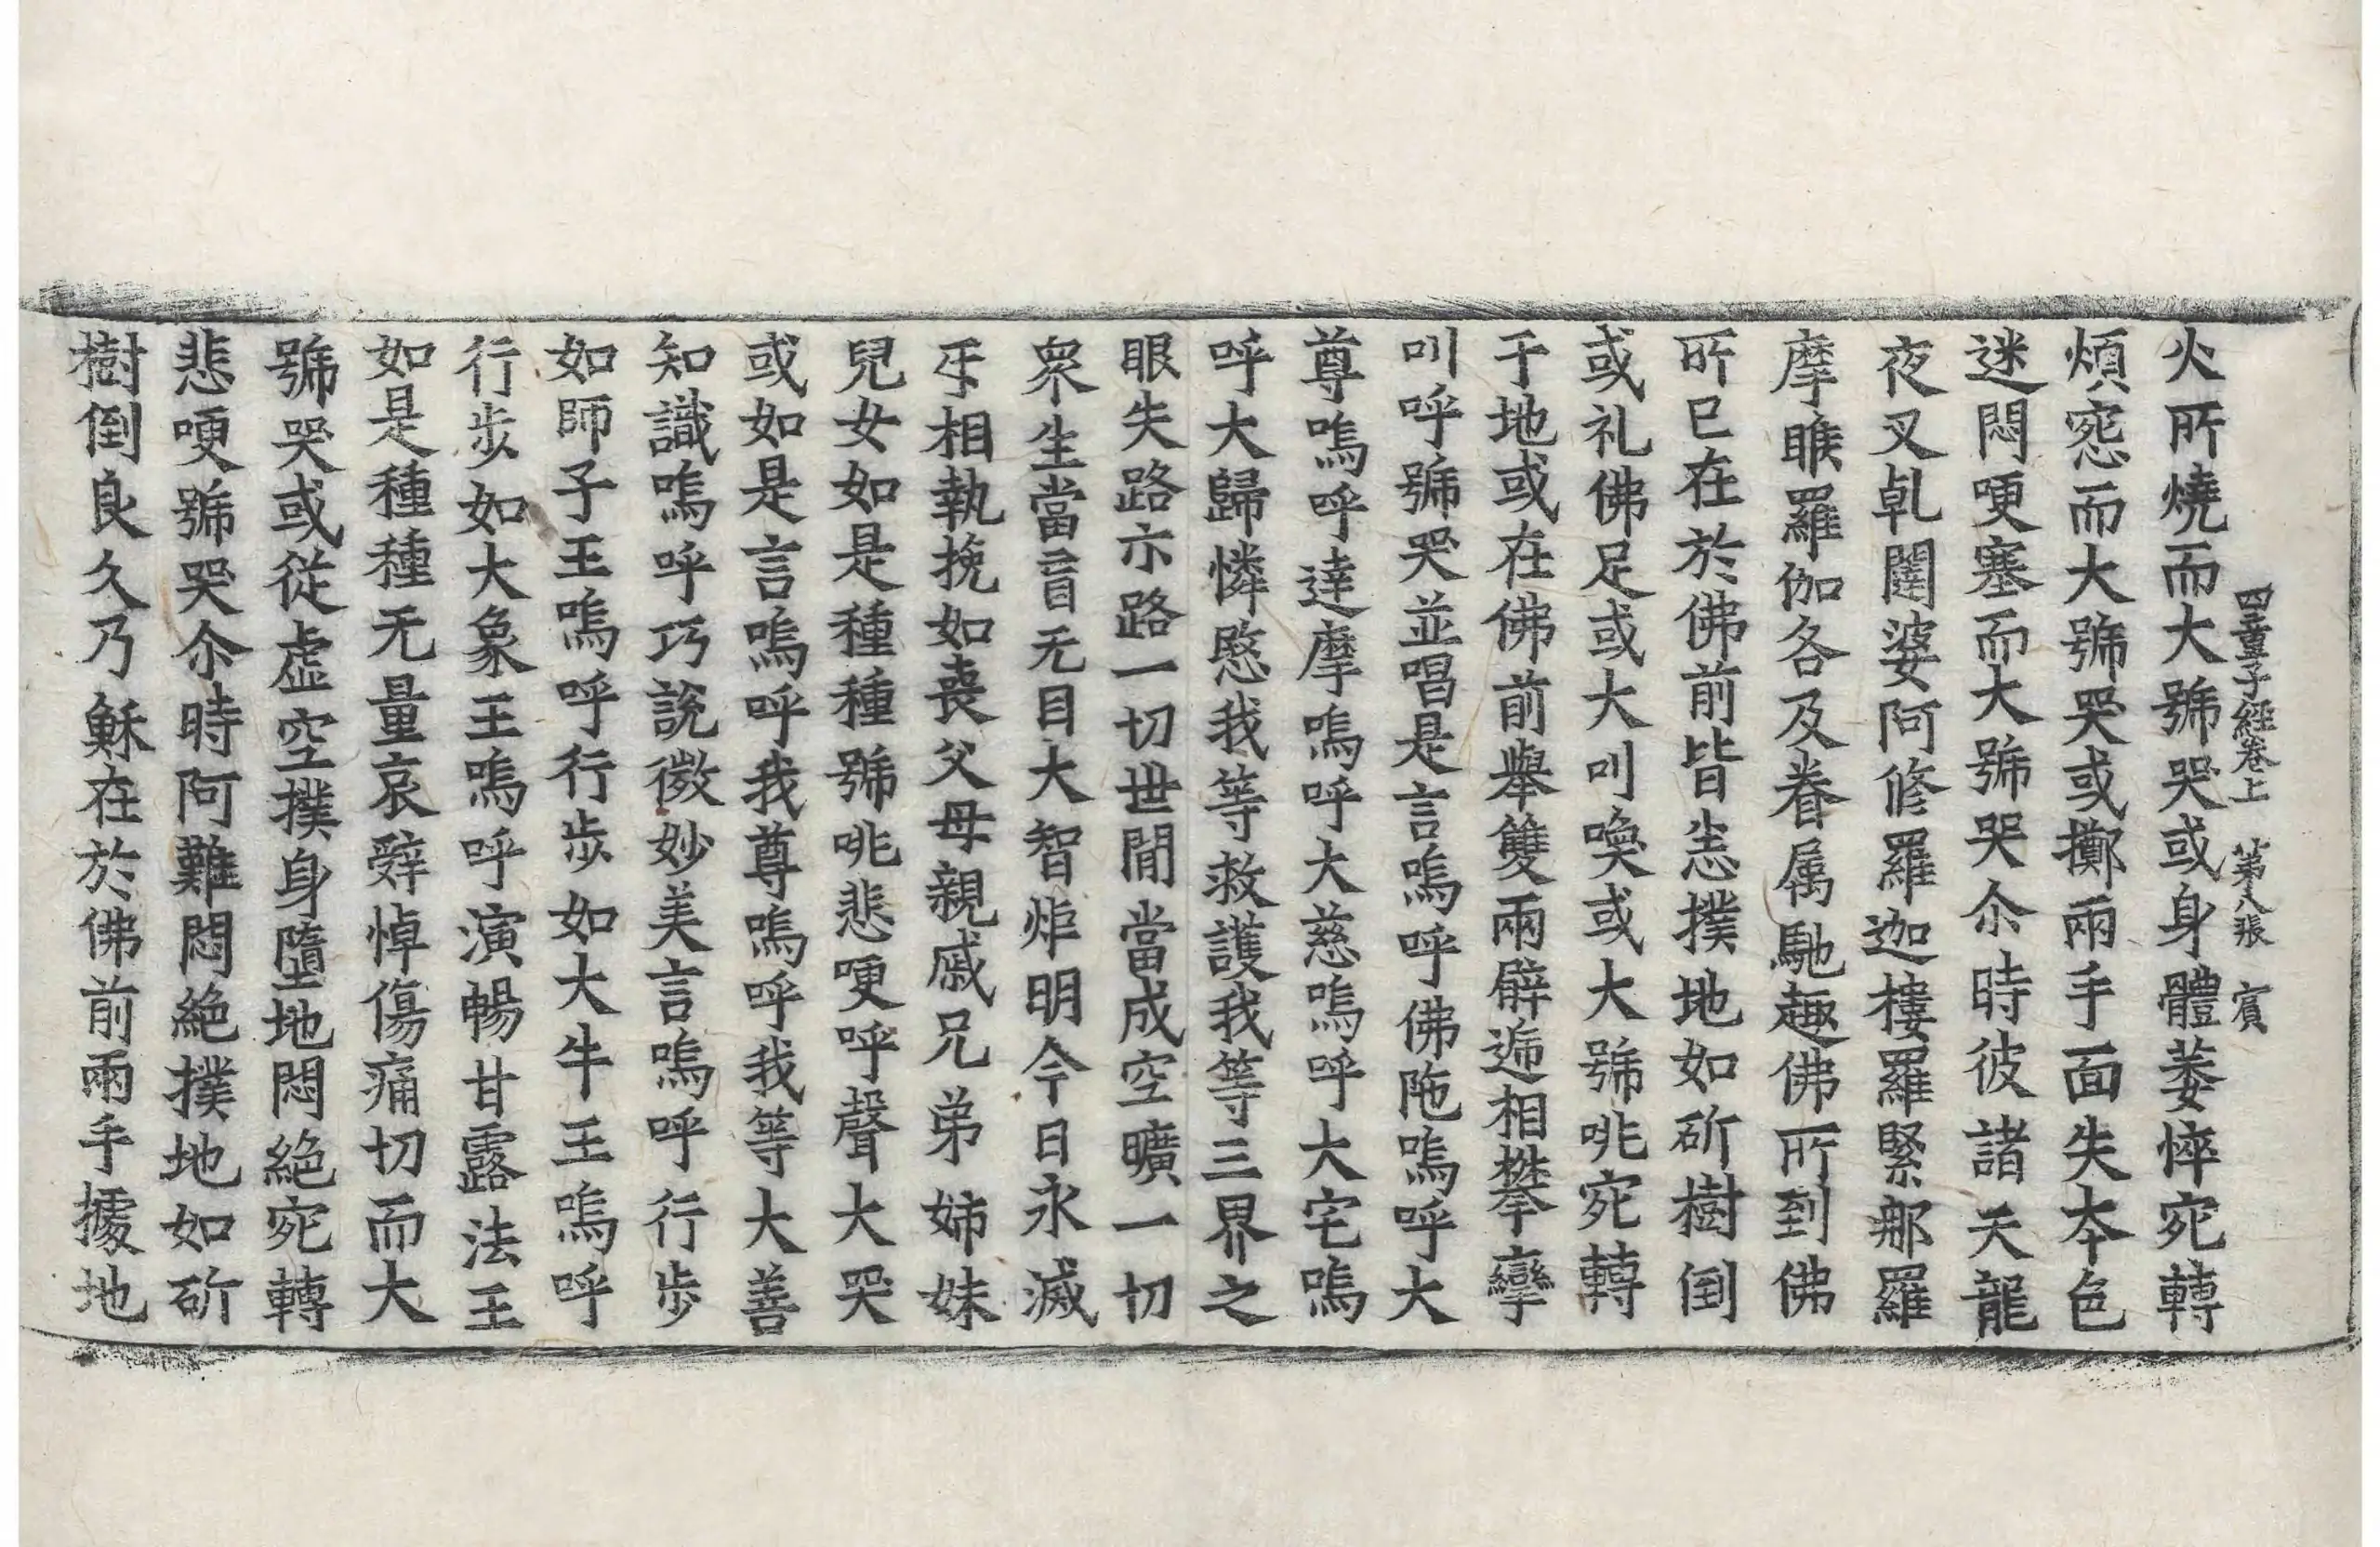 四童子經卷上 第八張 賓
火所燒而大號哭或身體萎悴宛轉
煩惌而大號哭或擲兩手面失本色
迷悶哽塞而大號哭尒時彼諸天龍
夜叉乹闥婆阿修羅迦樓羅緊那羅
摩睺羅伽各及眷属馳趣佛所到佛
所已在於佛前皆悉撲地如斫樹倒
或礼佛足或大叫喚或大號咷宛轉
于地或在佛前舉雙兩臂遞相攀攣
叫呼號哭並唱是言嗚呼佛陁嗚呼大
尊嗚呼達摩嗚呼大慈嗚呼大宅嗚
呼大歸憐愍我等救護我等三界之
眼失路示路一切世間當成空曠一切
衆生當盲无目大智炬明今日永滅
乎相執挽如喪父母親戚兄弟姉妹
兒女如是種種號咷悲哽呼聲大哭
或如是言嗚呼我尊嗚呼我等大善
知識嗚呼巧說微妙美言嗚呼行步
如師子王嗚呼行步如大牛王嗚呼
行步如大象王嗚呼演暢甘露法王
如是種種无量哀辤悼傷痛切而大
號哭或從虛空撲身墮地悶絕宛轉
悲哽號哭尒時阿難悶絕撲地如斫
樹倒良久乃穌在於佛前兩手據地